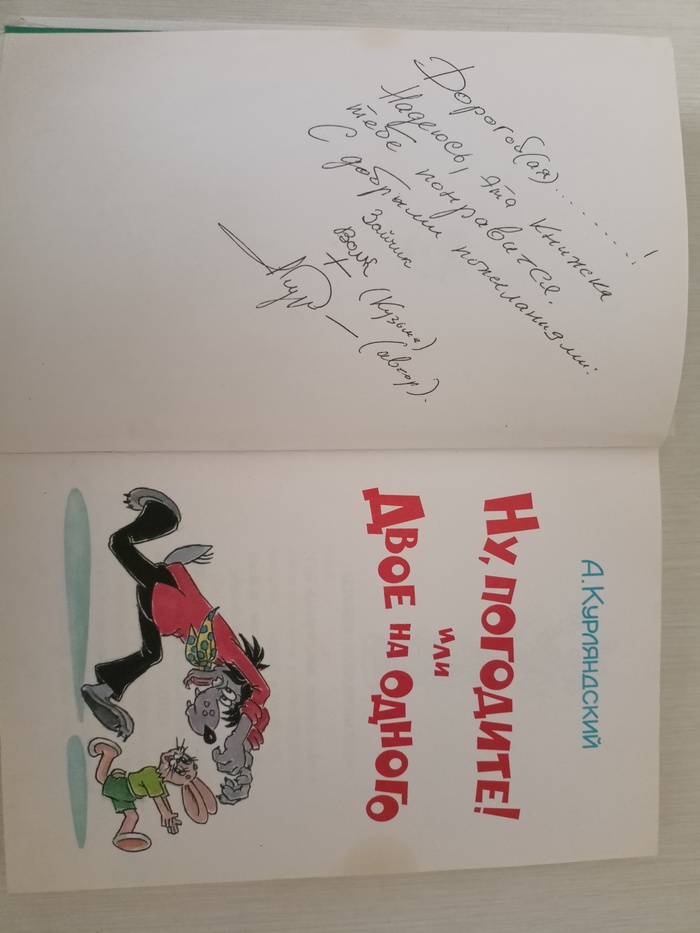 Дорогой(ая).........!
Надеюсь, эта книжка
тебе понравится.
С добрыми пожеланиями:
Зайчик
Волк
+ (Кузьма)
— (автор).
А. Курляндский
Ну, погодите!
или
Двое на одного